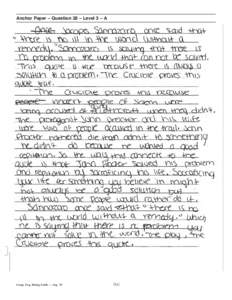 Anchor Paper – Question 28 – Level 3 – A
Jacopo Sannazaro once said that
"there is no ill in the world without a
remedy." Sannazaro is saying that there is
no problem in the world that can not be solved.
This quote is true because there is always a
solution to a problem. The Crucible proves this
quote true.
"The Crucible proves this because
innocent people of Salem were
being accused of witchcraft when they didn't.
The protagonist John Proctor and his wife
were two of people accused in the trial. John
Proctor rathered die than admit to something
he didn't do because he wanted a good
reputation. So the way this connects to the
quote is that John Proctor solved his problem
and reputation by sacrificing his life. Sacrificing
your life for something you believe in might
not always be a good solution but
that's how some people would rather do it.
Sannazaro once said that "there is no
ill in the world without a remedy." which
he is saying that there is no problem you
cannot be solved in the world. The play, The
Crucible proves this quote.